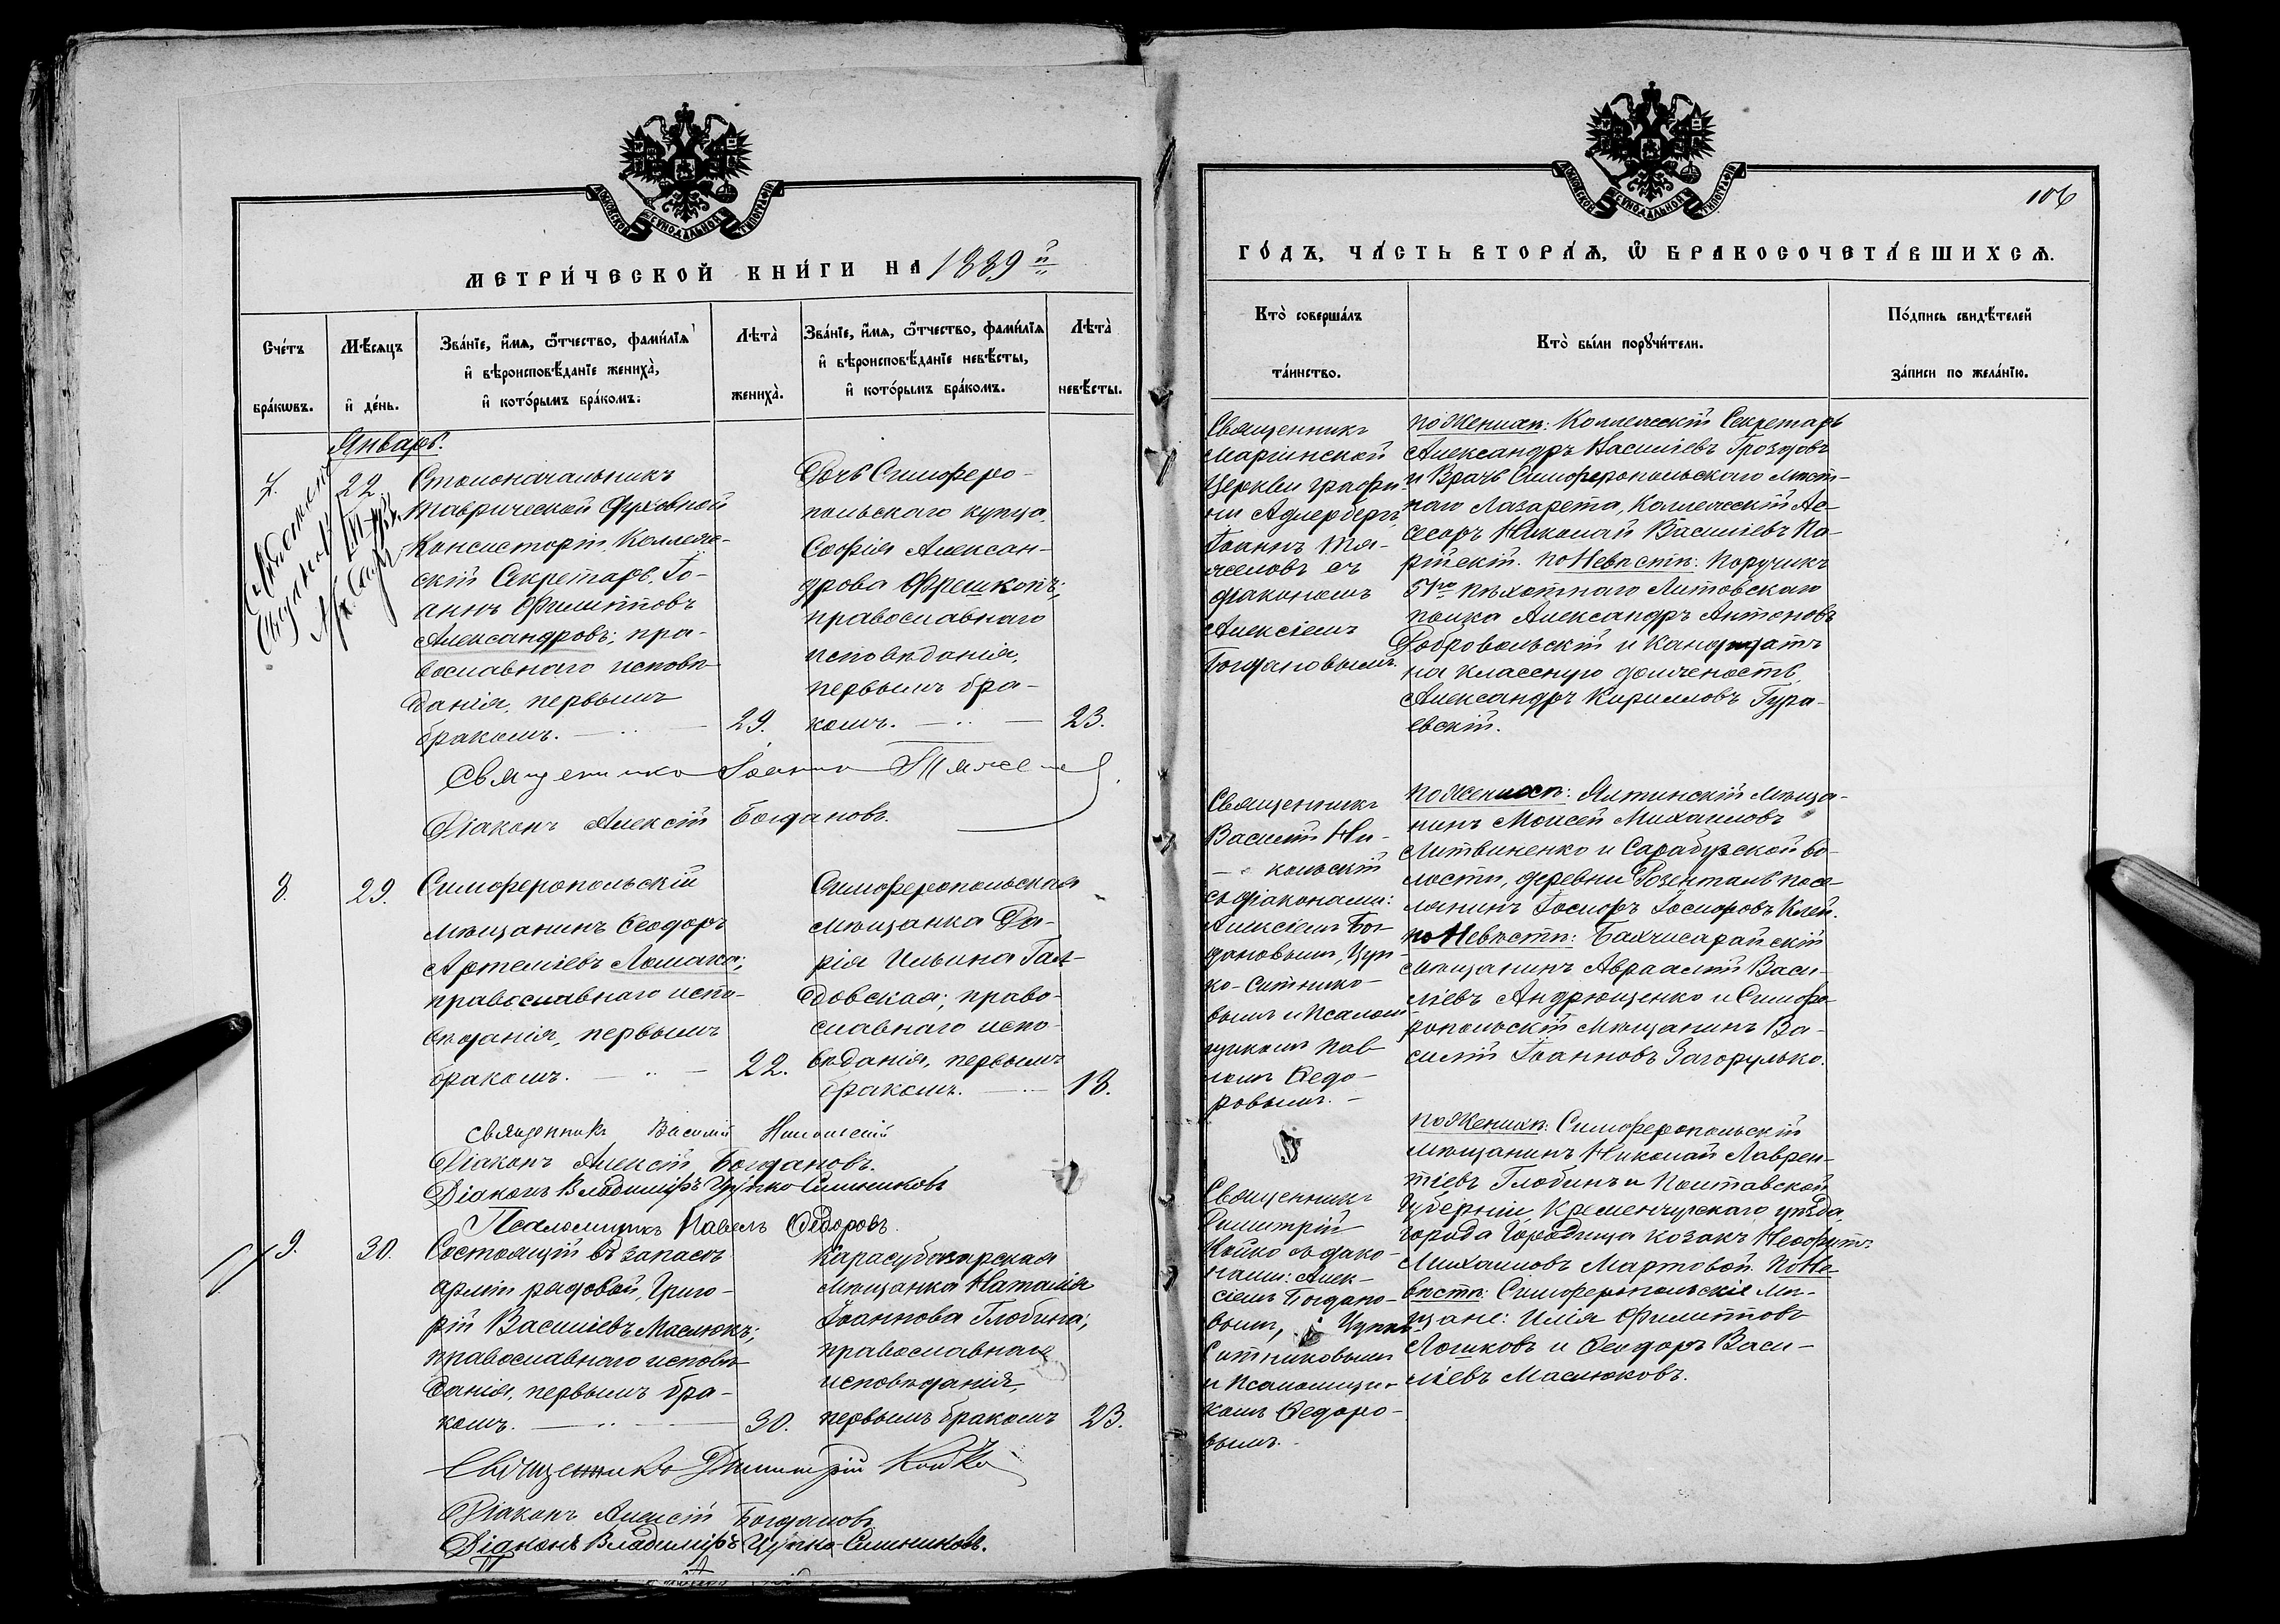 МЕТРИ́ЧЕСКОЙ КНИ́ГИ НА 1889й
Сче́тъ бра́кωвъ.
Мѣ́сяцъ и҆ де́нь.
Зва́нїе, и҆́мѧ, ѻ҆́тчество, фами́лїѧ
и҆ вѣроисповѣ́данїе жениха̀,
и҆ кото́рымъ бра́комъ.
Лѣта̀ жениха̀.
Зва́нїе, и҆́мѧ, ѻ҆́тчество, фами́лїѧ
и҆ вѣроисповѣ́данїе невѣ́сты,
и҆ кото́рымъ бра́комъ.
Лѣта̀ невѣ́сты.
Январь.
7.
22.
Столоначальникъ
Таврической Духовной
Консисторіи, Коллеж-
скій Секретарь, Іо-
аннъ Филипповъ
Александровъ; пра-
вославнаго исповѣ-
данія, первымъ
бракомъ.
29.
Дочь Симферо-
польскаго купца
Софія Алексан-
дрова Фрешкопъ;
православнаго
исповѣданія,
первымъ бра-
комъ.
23.
Священникъ Іоаннъ Тяжелов
Діаконъ Алексій Богдановъ.
8.
29.
Симферопольскій
мѣщанинъ Ѳеодоръ
Артеміевъ Ломака;
православнаго испо-
вѣданія, первымъ
бракомъ.
22.
Симферопольская
мѣщанка Да-
рія Ильина Гал-
довская; право-
славнаго испо-
вѣданія, первымъ
бракомъ.
18.
Священникъ Василій Никольскій
Діаконъ Алексій Богдановъ.
Діаконъ Владиміръ Цупко-Ситниковъ
Псаломщикъ Павелъ Ѳедоровъ.
9.
30.
Состоящій въ запасѣ
арміи рядовой, Григо-
рій Василіевъ Маслюкъ;
православнаго исповѣ-
данія, первымъ бра-
комъ.
30.
Карасубазарская
мѣщанка Наталія
Іоаннова Глобина;
православнаго
исповѣданія,
первымъ бракомъ
23.
Священникъ Димитрій Койко
Діаконъ Алексій Богдановъ
Діаконъ Владиміръ Цупко-Ситниковъ.
МОСКОВСКОЙ СѴНОДАЛЬНОЙ ТИПОГРАФІИ
106
ГО́ДЪ, ЧА́СТЬ ВТОРА́Ѧ, Ѡ҆ БРАКОСОЧЕТА́ВШИХСѦ.
Кто̀ соверша́лъ
та́инство.
Кто̀ бы́ли порꙋчи́тели.
По́дпись свидѣ́телей
за́писи по жела́нїю.
Священникъ
Маріинской
церкви графи-
ни Адлербергъ,
Іоаннъ Тя-
желовъ съ
діакономъ
Алексіемъ
Богдановымъ.
По женихѣ: Коллежскій Секретарь
Александръ Василіевъ Гроздовъ
и Врачъ Симферопольскаго Мѣст-
наго Лазарета, Коллежскій Ас-
сесоръ Николай Василіевъ Па-
рійскій. По невѣстѣ: Поручикъ
51го пѣхотнаго Литовскаго
полка Александръ Антоновъ
Добровольскій и кандидатъ
на классную должность
Александръ Кирилловъ Гура-
евскій.
Священникъ
Василій Ни-
кольскій
съ діаконами:
Алексіемъ Бог-
дановымъ, Цуп-
ко-Ситнико-
вымъ и Псалом-
щикомъ Пав-
ломъ Ѳедо-
ровымъ.
По женихѣ: Ялтинскій мѣща-
нинъ Моисей Михаиловъ
Литвиненко и Сарабузской во-
лости, деревни Розенталь посе-
лянинъ Іосифъ Іосифовъ Клей.
по Невѣстѣ: Бахчисарайскій
мѣщанинъ Авраамій Васи-
ліевъ Андрющенко и Симфе-
ропольскій мѣщанинъ Ва-
силій Іоанновъ Загорулько.
Священникъ
Димитрій
Койко съ діако-
нами: Алек-
сіемъ Богдано-
вымъ, Цупко-
Ситниковымъ
и Псаломщи-
комъ Ѳедоро-
вымъ.
По женихѣ: Симферопольскій
мѣщанинъ Николай Лаврен-
тіевъ Глобинъ и Полтавской
губерніи, Кременчугскаго уѣзда,
города Городища козакъ Неофитъ
Михаиловъ Мартовой. По Не-
вѣстѣ: Симферопольскіе мѣ-
щане: Илія Филипповъ
Лошковъ и Ѳеодоръ Васи-
ліевъ Маслюковъ.